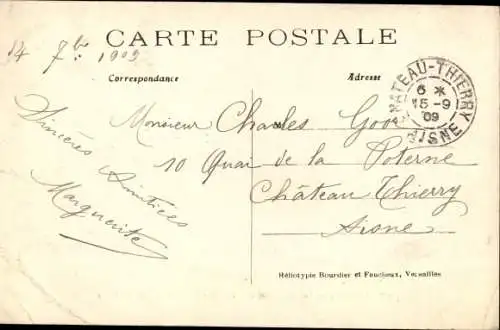 CARTE POSTALE
14 7bre 1909
Correspondance
Adresse
CHATEAU-THIERRY
6 *
15 -9
09
AISNE
Sincères
Amitiées
Marguerite
Monsieur Charles
10 Quai de la Poterne
Château Thierry
Aisne
Héliotypie Bourdier et Faucheux, Versailles